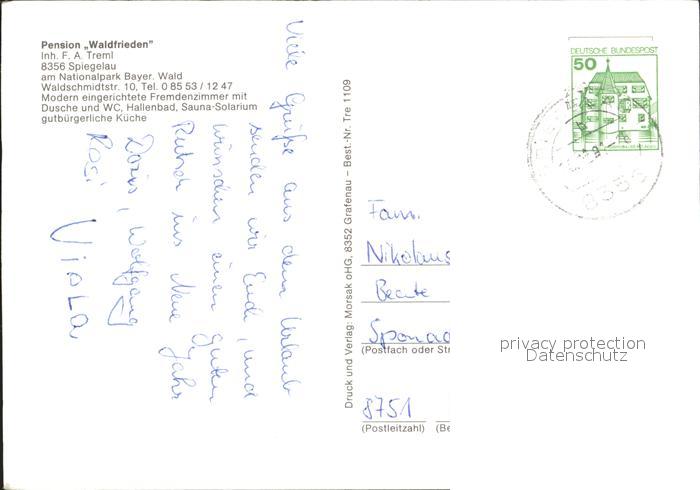 Pension „Waldfrieden"
Inh. F. A. Treml
8356 Spiegelau
am Nationalpark Bayer. Wald
Waldschmidtstr. 10, Tel. 0 85 53 / 12 47
Modern eingerichtete Fremdenzimmer mit
Dusche und WC, Hallenbad, Sauna-Solarium
gutbürgerliche Küche
Viele Grüße aus dem Urlaub
senden wir Euch, und
wünschen einen guten
Rutsch ins Neue Jahr
Doris, Wolfgang
Rosi
Viola
Druck und Verlag: Morsak oHG, 8352 Grafenau – Best.-Nr. Tre 1109
DEUTSCHE BUNDESPOST
50
Fam.
Nikolaus
Beate
(Postfach oder Str
8751
(Postleitzahl) (Be
privacy protection
Datenschutz